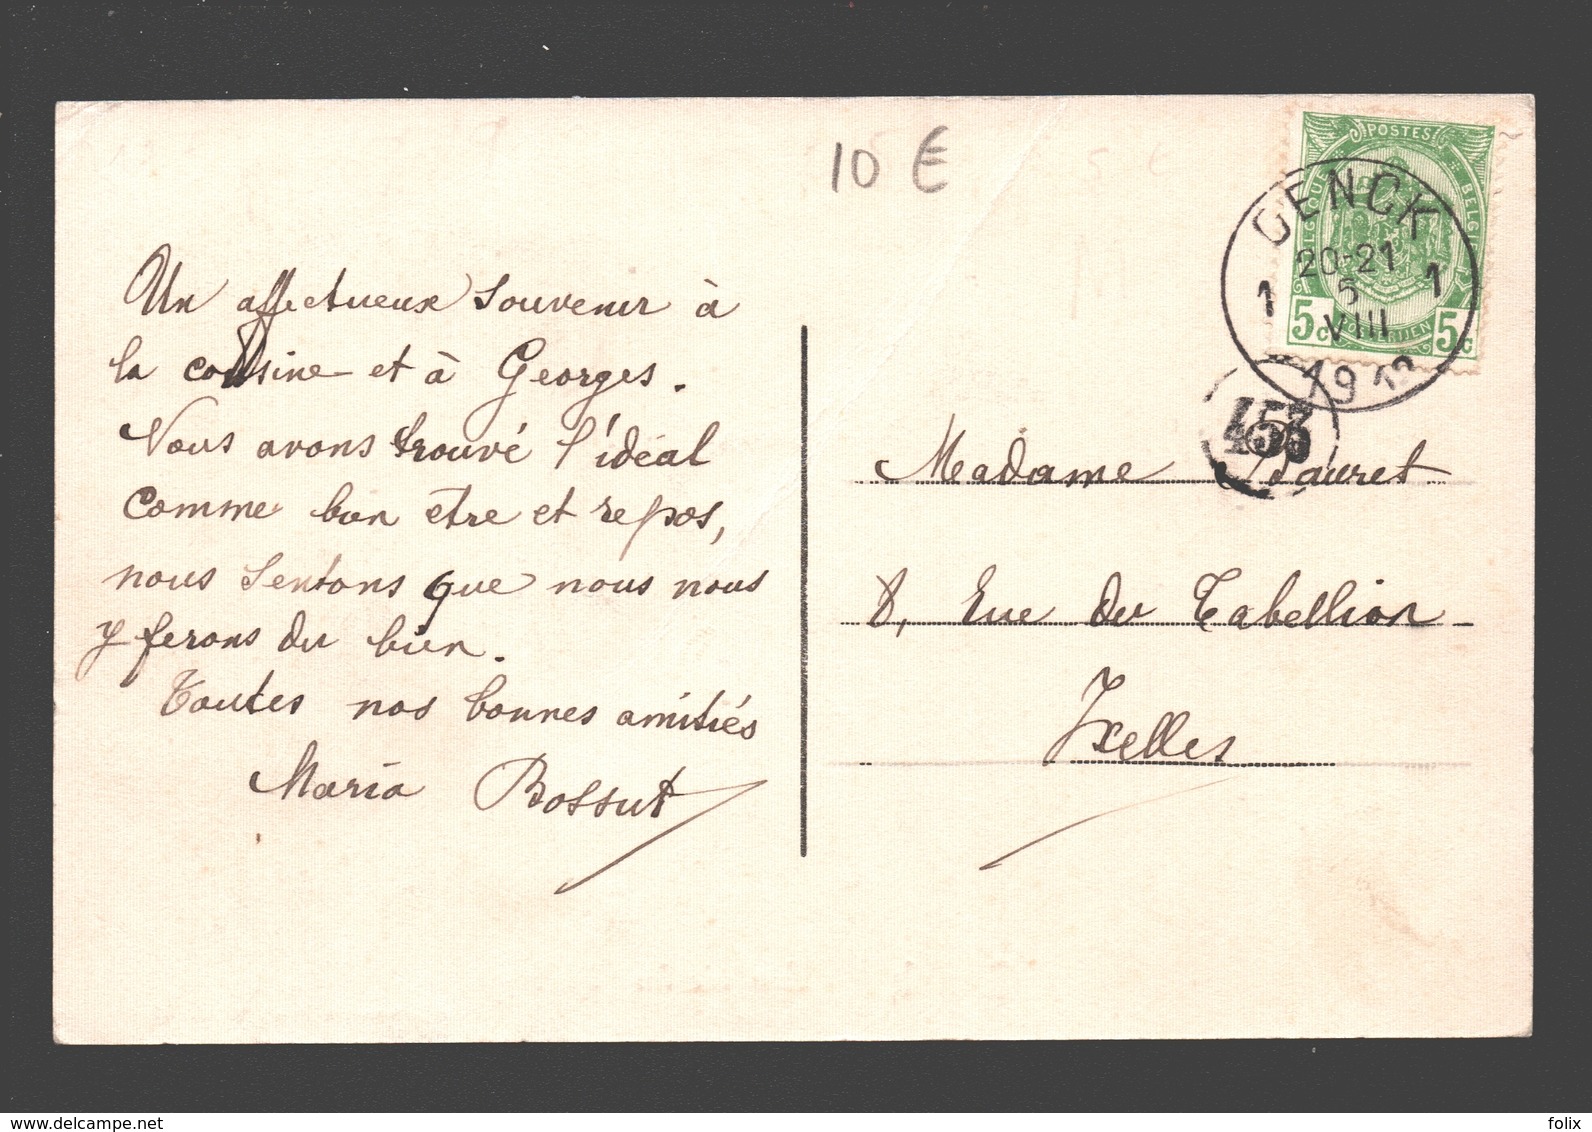 10 €
Un affectueux souvenir à
la cousine et à Georges.
Nous avons trouvé l'idéal
comme bien être et repos,
nous sentons que nous nous
y ferons du bien.
Toutes nos bonnes amitiés
Maria Bossut
POSTES
BELGIQUE BELGIË
POSTERIJEN
5c 5c
GENCK
20-21
1 5 1
VIII
1912
Madame Pauret
8, Rue du Tabellion
Ixelles
delcampe.net
folix